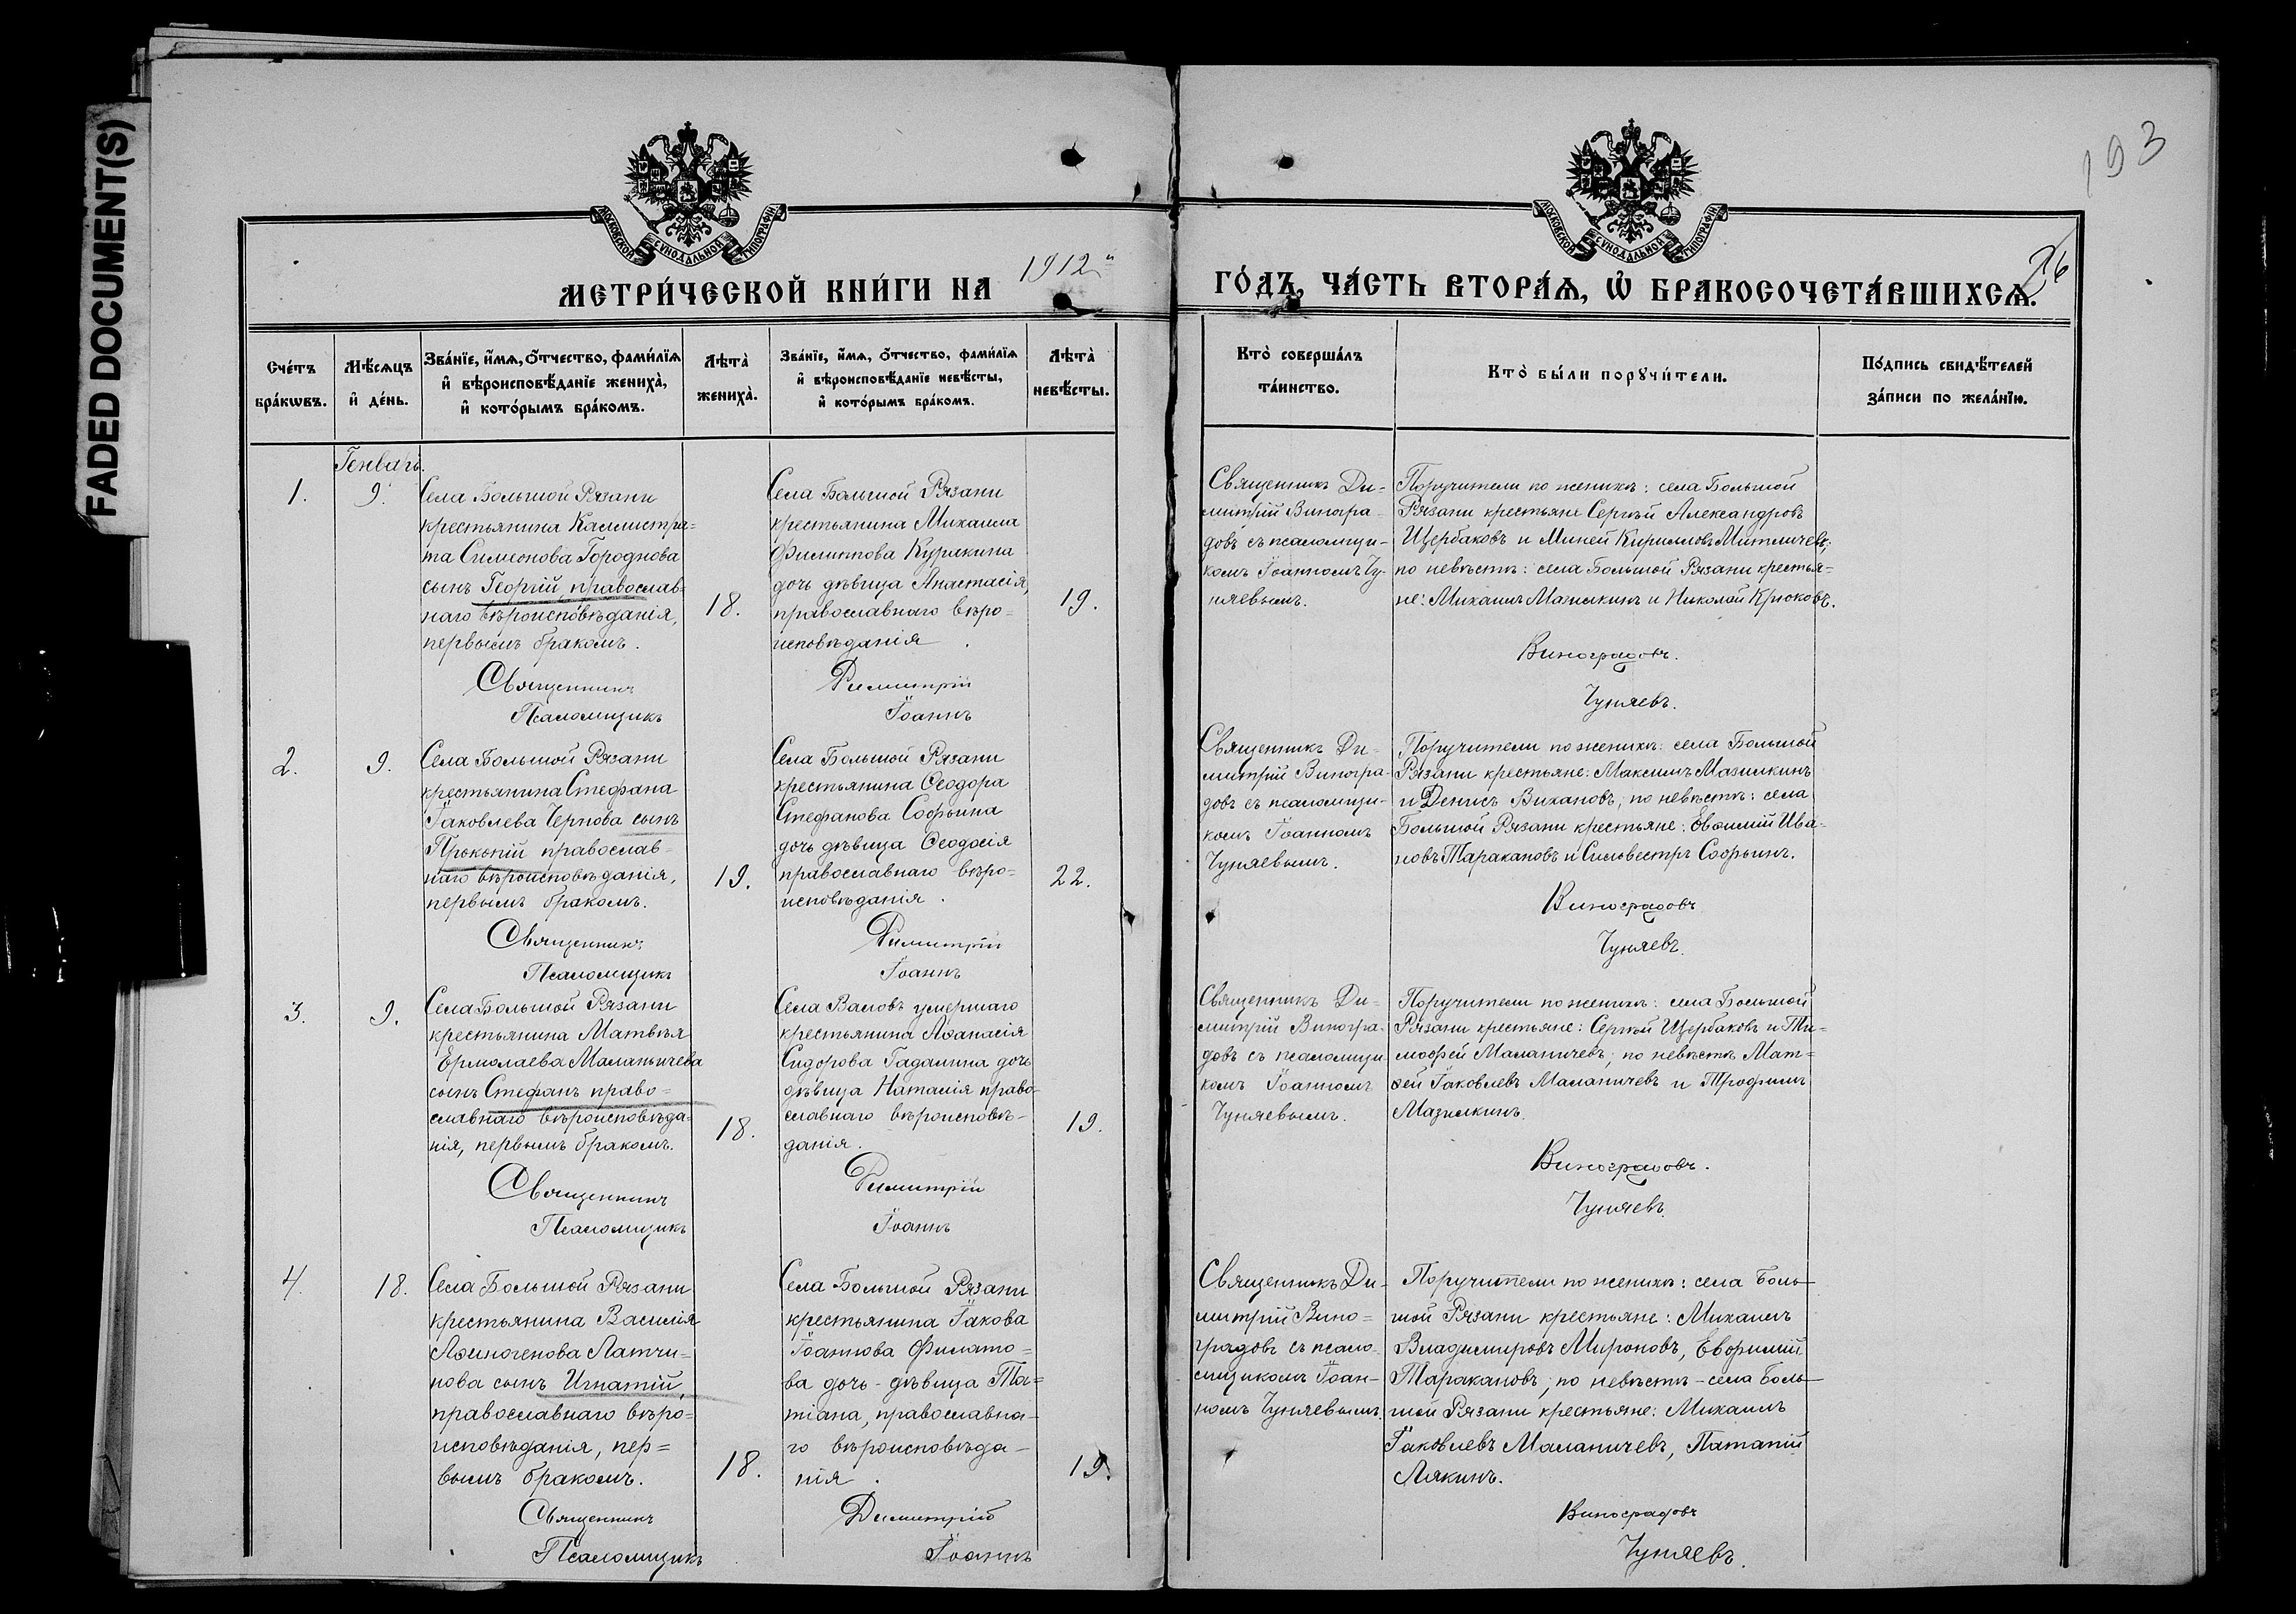 FADED DOCUMENT(S)
193
26
МОСКОВСКОЙ СѴНОДАЛЬНОЙ ТИПОГРАФІИ
МОСКОВСКОЙ СѴНОДАЛЬНОЙ ТИПОГРАФІИ
МЕТРИ́ЧЕСКОЙ КНИ́ГИ НА 1912й ГО́ДЪ, ЧА́СТЬ ВТОРА́Ѧ, Ѽ БРАКОСОЧЕТА́ВШИХСѦ.
Сче́тъ бра́кѡвъ.
Мѣ́сѧцъ и҆ де́нь.
Зва́нїе, и҆́мѧ, ѻ҆́тчество, фами́лїѧ
и҆ вѣроисповѣ́данїе жениха̀,
и҆ кото́рымъ бра́комъ.
Лѣта̀ жениха̀.
Зва́нїе, и҆́мѧ, ѻ҆́тчество, фами́лїѧ
и҆ вѣроисповѣ́данїе невѣ́сты,
и҆ кото́рымъ бра́комъ.
Лѣта̀ невѣ́сты.
Кто̀ соверша́лъ
та́инство.
Кто̀ бы́ли порꙋчи́тели.
По́дпись свидѣ́телей
за́писи по жела́нїю.
Генварь.
1.
9.
Села Большой Рязани
крестьянина Каллистра=
та Симеонова Городнова
сынъ Георгій, православ=
наго вѣроисповѣданія,
первымъ бракомъ.
18.
Села Большой Рязани
крестьянина Михаила
Филиппова Курякина
дочь дѣвица Анастасія,
православнаго вѣро=
исповѣданія.
19.
Священникъ Ди=
митрій Виногра-
довъ съ псаломщи-
комъ Іоанномъ Чу-
няевымъ.
Поручители по женихѣ: села Большой
Рязани крестьяне Сергѣй Александровъ
Щербаковъ и Миней Кирилловъ Митличевъ;
по невѣстѣ: села Большой Рязани крестья=
не: Михаилъ Мазилкинъ и Николай Крюковъ.
Священникъ Димитрій Виноградовъ.
Псаломщикъ Іоаннъ Чуняевъ.
2.
9.
Села Большой Рязани
крестьянина Стефана
Іаковлева Чернова сынъ
Прокопій православ-
наго вѣроисповѣданія,
первымъ бракомъ.
19.
Села Большой Рязани
крестьянина Ѳеодора
Стефанова Софьина
дочь дѣвица Ѳеодосія
православнаго вѣро=
исповѣданія.
22.
Священникъ Ди-
митрій Виногра-
довъ съ псаломщи-
комъ Іоанномъ
Чуняевымъ.
Поручители по женихѣ: села Большой
Рязани крестьяне: Максимъ Мазилкинъ
и Денисъ Викановъ; по невѣстѣ: села
Большой Рязани крестьяне: Евѳимій Ива-
новъ Таракановъ и Сильвестръ Софьинъ.
Священникъ Димитрій Виноградовъ
Псаломщикъ Іоаннъ Чуняевъ.
3.
9.
Села Большой Рязани
крестьянина Матвѣя
Ермолаева Маланьичева
сынъ Стефанъ право=
славнаго вѣроисповѣда=
нія, первымъ бракомъ.
18.
Села Валовъ умершаго
крестьянина Аѳанасія
Сидорова Гадалина дочь
дѣвица Наталія право-
славнаго вѣроисповѣ-
данія.
19.
Священникъ Ди=
митрій Виногра-
довъ съ псаломщи
комъ Іоанномъ
Чуняевымъ.
Поручители по женихѣ: села Большой
Рязани крестьяне: Сергѣй Щербаковъ и Ти=
моѳей Маланичевъ; по невѣстѣ Мат=
ѳей Іаковлевъ Маланичевъ и Трофимъ
Мазилкинъ.
Священникъ Димитрій Виноградовъ.
Псаломщикъ Іоаннъ Чуняевъ.
4.
18.
Села Большой Рязани
крестьянина Василія
Аѳиногенова Латчи-
нова сынъ Игнатій,
православнаго вѣро=
исповѣданія, пер=
вымъ бракомъ.
18.
Села Большой Рязани
крестьянина Іакова
Іоаннова Филато=
ва дочь-дѣвица Та=
тіана, православна-
го вѣроисповѣда-
нія.
19.
Священникъ Ди-
митрій Вино=
градовъ съ псало-
мщикомъ Іоан-
номъ Чуняевымъ.
Поручители по женихѣ: села Боль-
шой Рязани крестьяне: Михаилъ
Владимировъ Мироновъ, Евфимій
Таракановъ; по невѣстѣ-села Боль-
шой Рязани крестьяне: Михаилъ
Іаковлевъ Маланичевъ, Патапій
Лякинъ.
Священникъ Димитрій Виноградовъ
Псаломщикъ Іоаннъ Чуняевъ.